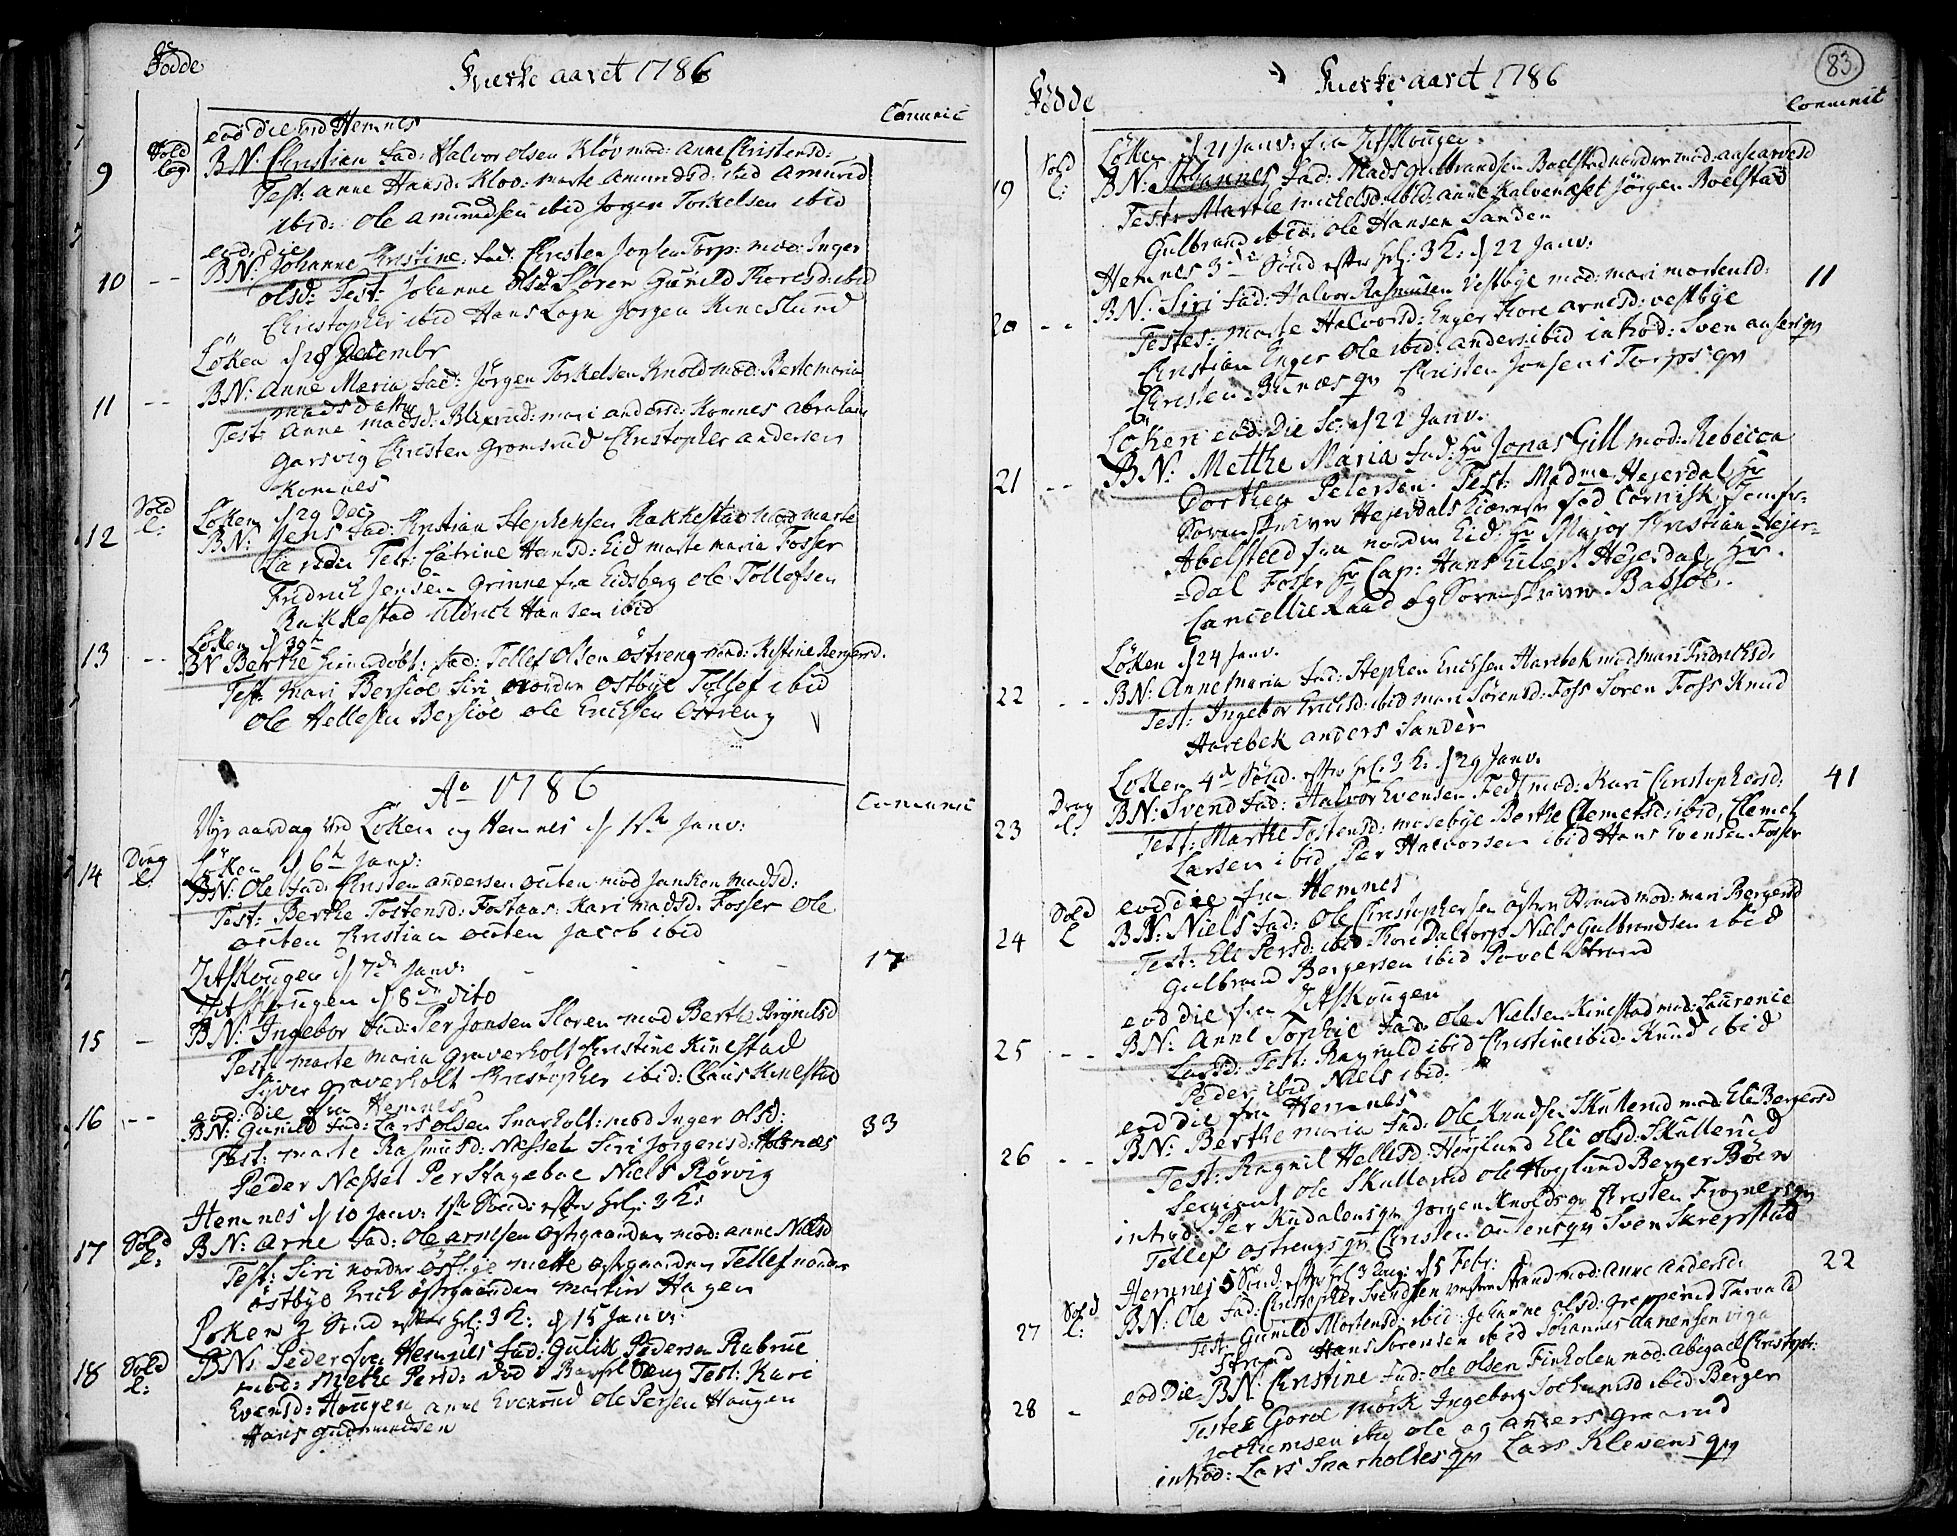 Födde
Kierke aaret 1786
Communic
eod die ved Hemnes
9 Sold leg BN: Christian fad: Halvor Olsen Kløv mod: Anne Christensd:
Test: Anne Hansd: Klov: Marte Amundsd: ibid Amund
ibid: Ole Amundsen ibid Jørgen Torkelsen ibid
eod: die
10 - - BN: Johanne Christine: fad: Christen Jonsen Torp: mod: Inger
olsd: Test: Johanne olsd: Sloren Gunild Thoresd: ibid
Christopher ibid Hans Logn Jorgen Kineslund
Löken d 28 Decembr
11 - - BN: Anne Maria fad: Jörgen Torkelsen Knold mod: Berte Maria
Madsdatter
Test: Anne Madsd: Blixrud: Mari Andersd: Komnes Abraham
Garsvig Christen Gromsrud Christopher Andersen
Komnes
Löken d 29 Dec
12 Sold l: BN: Jens fad: Christian Stephensen Rakkestad mod Marte
Larsd: Test: Catrine Hansd: Eid Marte Maria Fosser
Fridrich Jensen Grinne fra Eidsberg Ole Tollefsen
Rakkestad Aldrich Hansen ibid
Löken d 30h
13 - - BN Berthe hiemedøbt: fad: Tollef Olsen Östreng mod: Kistine Bergersd.
Test: Mari Bersiøe Siri nordre Ostbye Tollef ibid
Ole Hellesen Bersiöe Ole Erichsen Östreng
Ao 1786
Communic
Nyaarsdag ved Löken og Hemnes d 1ste Janv:
Löken d 6h Janv:
14 Drag l: BN: Ole fad: Christen Andersen Outen mod Janken Madsd:
Test: Berthe Tostensd: Fostaas: Kari Madsd: Fosser Ole
Outen Christian Outen Jacob ibid
Zitskougen d 7de Janv: - - - 17
Zitskougen d 8de dito
15 - BN: Ingebor fad: Per Jonsen Sloren mod Berthe Brynilsd
Test: Marte Maria Graverholt Christine Kinestad
Syver Graverholt Christopher ibid: Claus Kinestad
eod: die fra Hemnes
16 - - BN: Gunild fad: Lars Olsen Snarholt: mod Inger Olsd: 33
Test: Marte Rasmusd: Nessel Siri Jørgensd: Holtnæs
Peder Nessel Per Hagebae Niels Rörvig
Hemnes d 10 Janv: 1ste Sönd: efter hel: 3 K:
17 Sold l: BN: Arne fad: Ole Arnesen Ostgaarden mod: Anne Nielsd
Test: Siri nordre Östbye Mette Ostgaarden Tellef nordre
Östbye Erich Østgaarden Martin Hagen
Löken 2 Sönd efter hel: 3 K: d 15 Janv:
18 Sold l: BN: Peder fra Hemnes fad: Gulik Pedersen Rabrue
mod: Mette Persd: død i Barsel Seng Test: Kari
Evensd: Hougen Anne Evenrud Ole Persen Hougen
Hans Gudmundsen
83
Födde
Kierke aaret 1786
Communic
Löken d 21 Janv: fra Zitskougen
19 Sold l: BN: Johannes fad: Mads Gulbrandsen Boelstad nordre mod: Aase Arvesd
Test: Marthe Michelsd: ibid: Anne Kalvenæset Jörgen Boelstad
Gulbrand ibid: Ole Hansen Sanden
Hemnes 3de Sönd efter hel: 3 K: d 22 Janv: 11
20 - - BN: Siri fad: Halvor Rasmusen Vestbye mod: Mari Mortensd:
Testes: Marte Halvorsd: Enger Thore Arnesd: Vestbye
Christian Enger Ole ibid: Anders ibid introd: Sven
Christen Bunæs qv Christen Jonsens Torps qv
Löken eod: Die Sc: d 22 Janv:
21 - - BN: Metthe Maria fad: Hr Jonas Gill mod: Rebecca
Dorthea Petersen. Test: Madme Hejerdal Hr
Sorenskriver Hejerdals Kiæreste fød Cornisk Jomfr:
Abelsted fra nordre Eid: Hr Major Christian Hejer-
-dal Fosser Hr Cap: Hans Hejerdal Hr.
Cancellie Raad og Sorenskriver Bassöe.
Löken d 24 Janv.
22 - - BN: Anne Maria fad: Stephen Erichsen Harebek mod Mari Fridrichsd.
Test: Ingebor Erichsd: ibid Mari Sörensd: Foss Soren Foss Knud
Harebek Anders Sander
Loken 4de Sönd. efter hel: 3 K: d 29 Janv. 41
23 Drag l: BN: Svend fad: Halvor Evensen Fedt mod: Kari Christophersd:
Test: Marthe Tostensd: Mosebye Berthe Clemetsd: ibid, Clemet
Larsen ibid Per Halvorsen ibid Hans Evensen Fosser
eod die fra Hemnes
24 Sold l BN: Niels fad: Ole Christophersen östre Strand mod: Mari Bergersd
Test: Eli Persd: ibid Thore Daltorp Niels Gulbrandsen ibid
Gulbrand Bergersen ibid Povel Strand
eod die fra Zitskougen
25 - - - BN: Anne Sophie fad: Ole Nielsen Kinestad mod: Laurence
Larsd: Test: Ragnild ibid Christine ibid. Knud ibid
Peder ibid Niels ibid:
eod die fra Hemnes
26 - - BN: Berthe Maria fad: Ole Knudsen Skullerud mod: Eli Bergersd
Test: Ragnil Hellesd: Høyslund Eli Olsd: Skullerud
Sergiant Ole Skullerud Ole Høyslund Berger Böen
introd: Per Kudalens qv Jørgen Knolds qv Christen Frogners qv
Tellefs Østrengs qv Christen Outens qv Sven Skrepstad
Hemnes 5 Sönd: efter hel 3 Kong: d 5 Febr: 22
27 Sold l: BN: Ole fad: Christopher Svendsen vestre Strand mod: Anne Andersd:
Test: Gunild Mortensd: ibid: Johanne Olsd: Grepperud Torvald
Strand Hans Sörensen ibid Johannes Viga
28 - eod Die BN: Christine fad: Ole Olsen Finholen mod: Abigael Christophr:
Testes Gorol Mörk Ingeborg Jochumsd ibid Berger
Jochumsen ibid Ole og Anders Graarud
introd: Lars Snarholtes qv Lars Klevens qv